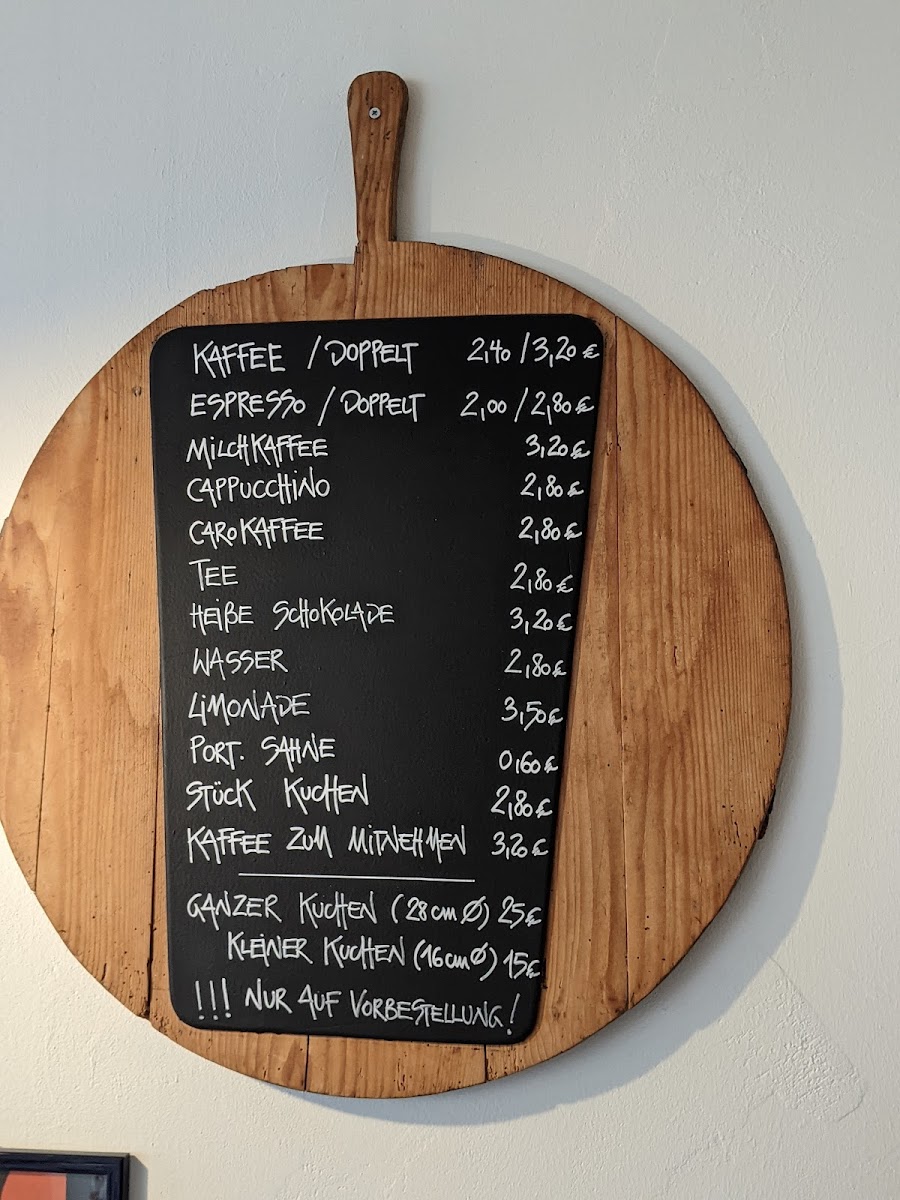 KAFFEE / DOPPELT 2,40 / 3,20 €
ESPRESSO / DOPPELT 2,00 / 2,80 €
MILCHKAFFEE 3,20 €
CAPPUCCHINO 2,80 €
CAROKAFFEE 2,80 €
TEE 2,80 €
HEIßE SCHOKOLADE 3,20 €
WASSER 2,80 €
LIMONADE 3,50 €
PORT. SAHNE 0,60 €
STÜCK KUCHEN 2,80 €
KAFFEE ZUM MITNEHMEN 3,20 €
GANZER KUCHEN (28 cm Ø) 25 €
KLEINER KUCHEN (16 cm Ø) 15 €
!!! NUR AUF VORBESTELLUNG !